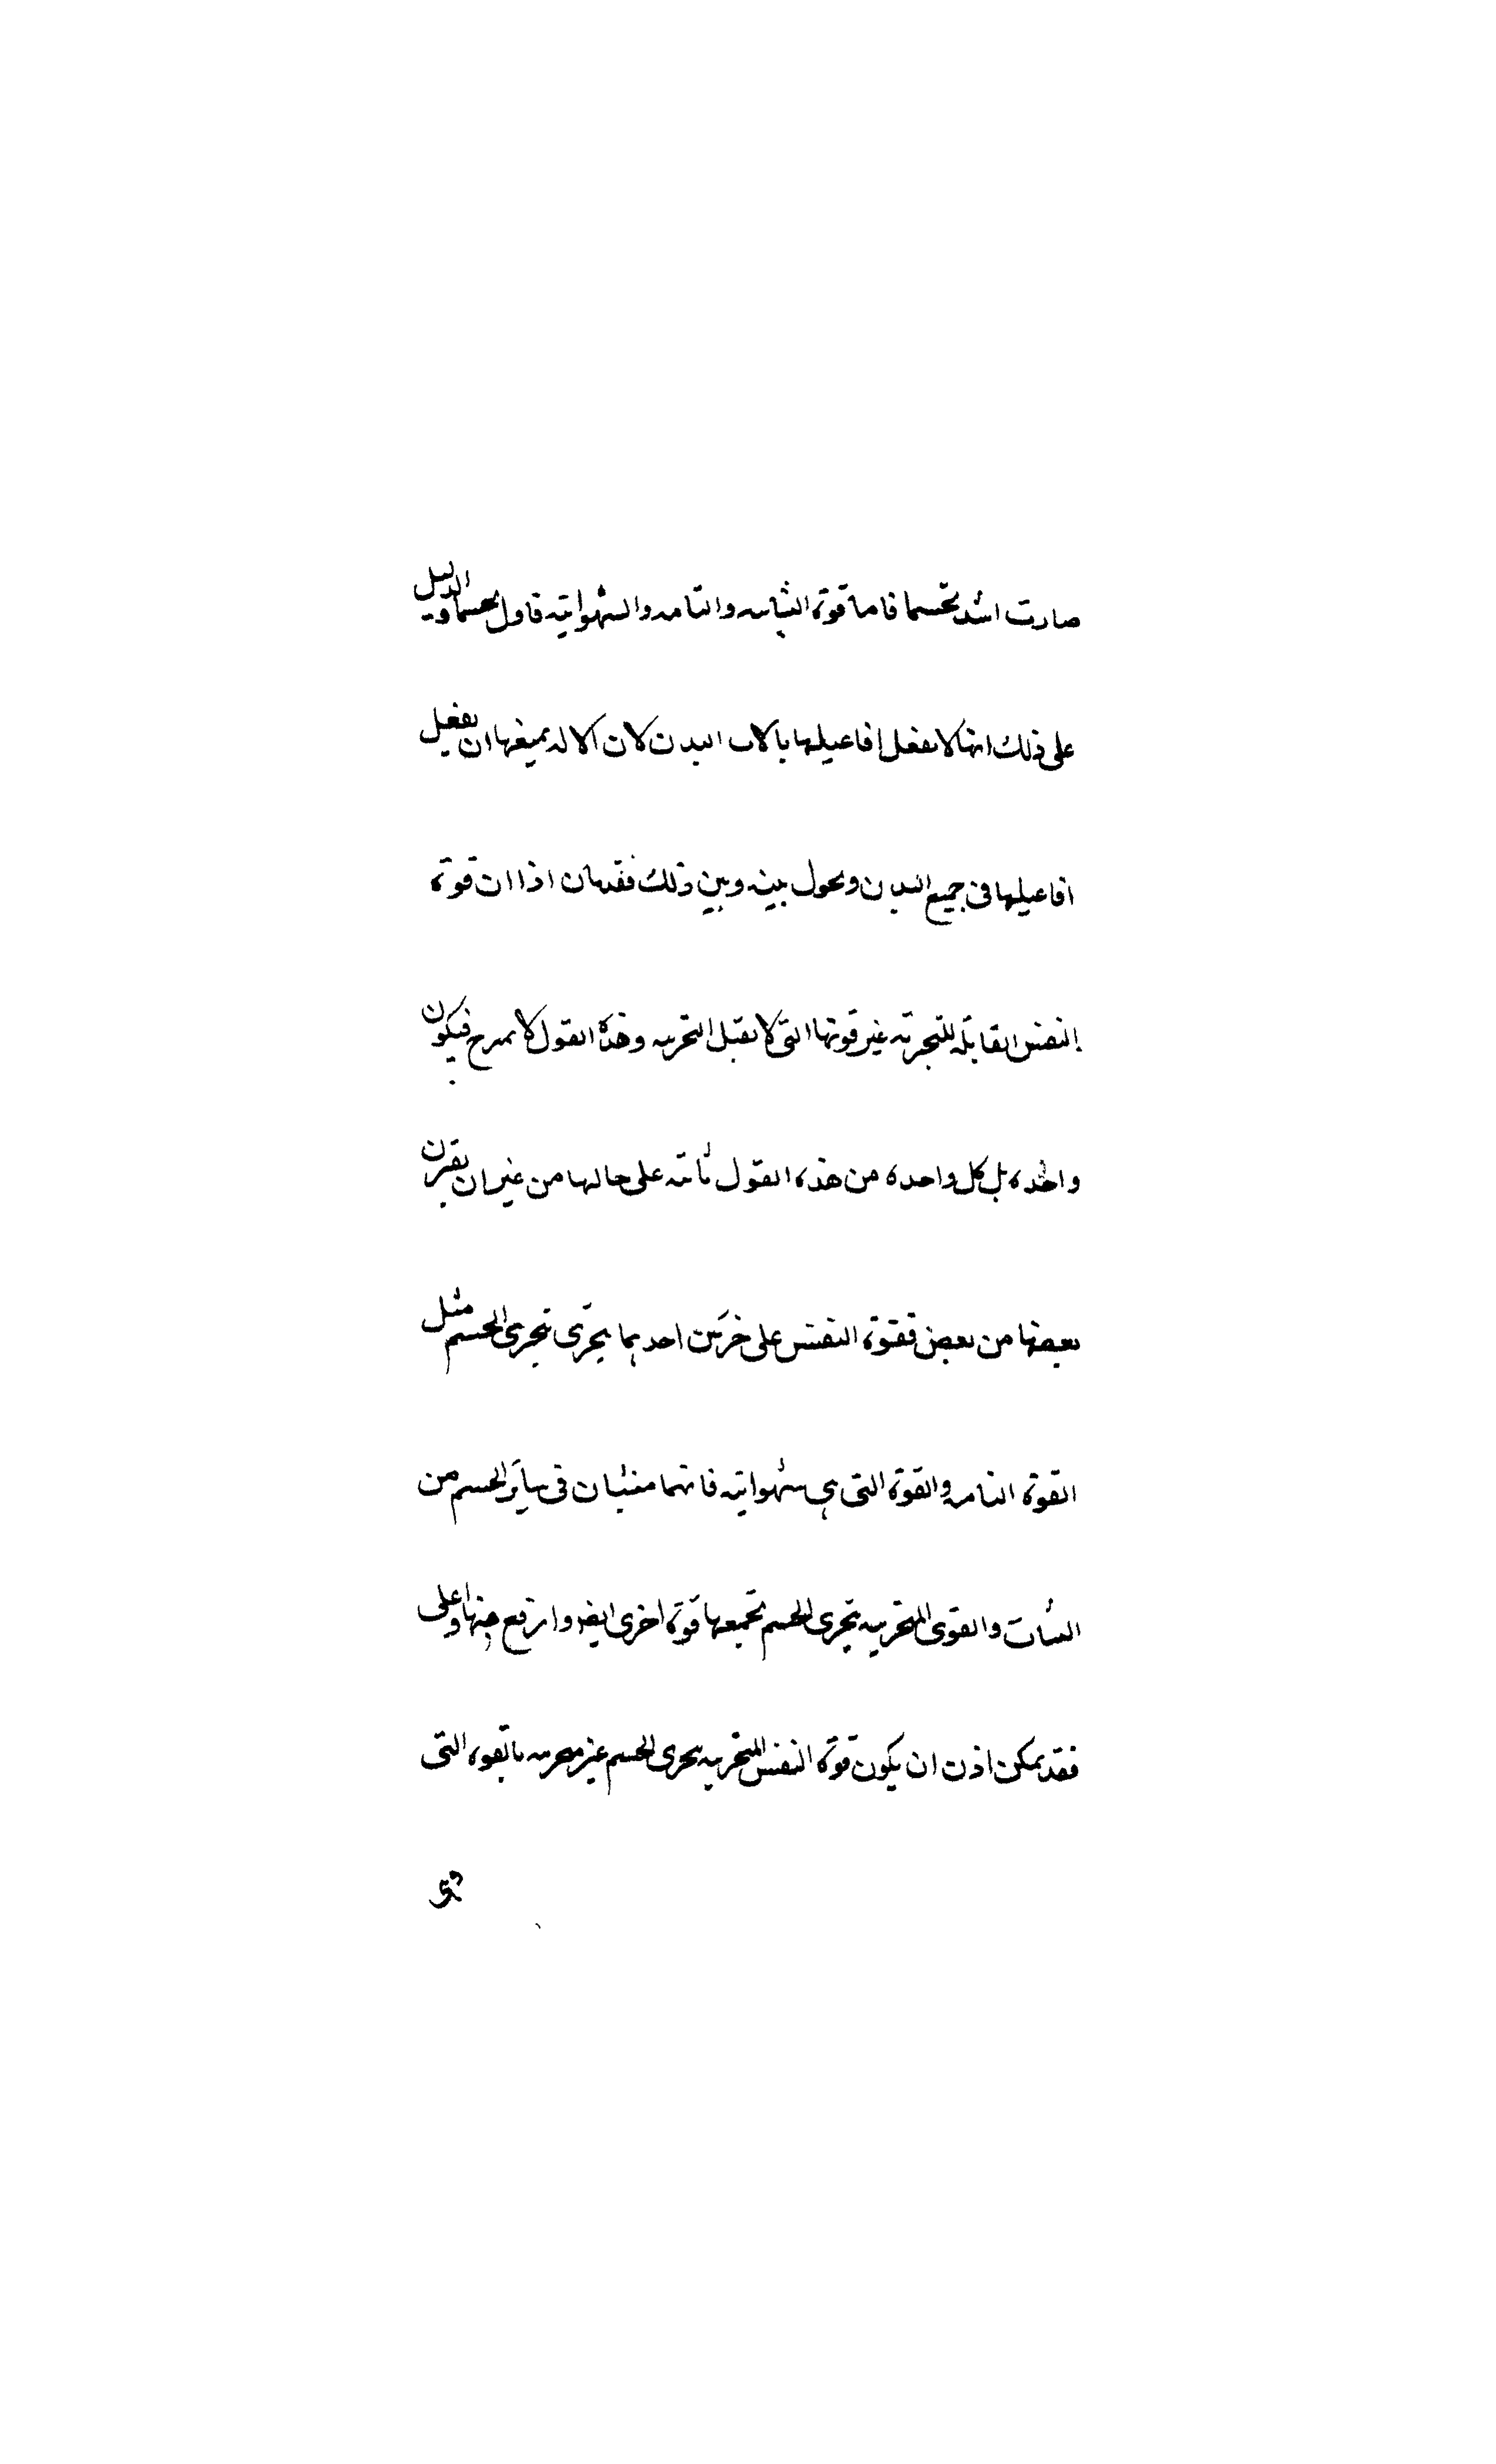 صارت اشد تجسما فاما قوة النباتيه والناميه والشهوانيه فاول تجسما والدليل
على ذلك انها لا تفعل افاعيلها بالات البدن لان الاله يمنعها ان تفعل
افاعيلها فى جميع البدن وتحول بينه وبين ذلك فقد بان اذا ان قوة
النفس القابلة للتجزيه غير قوتها التى لا تقبل التجزيه وهذه القول لا تمزج فيكون
واحده بل كل واحده من هذه القول ثابته على حالها من غير ان يقترن
بعضها من بعض فقوة النفس على ضربين احديهما يتجزى بتجزى الجسم مثل
القوة الناميه والقوة التى هى شهوانيه فانهما منبثان فى ساير الجسم من
النبات والقوى المتجزيه بتجزى الجسم تجمعها قوة اخرى ايضا وارفع منها واعلى
فقد يمكن اذن ان يكون قوة النفس المتجزيه بتجزى الجسم غير متجزيه بالقوه التى